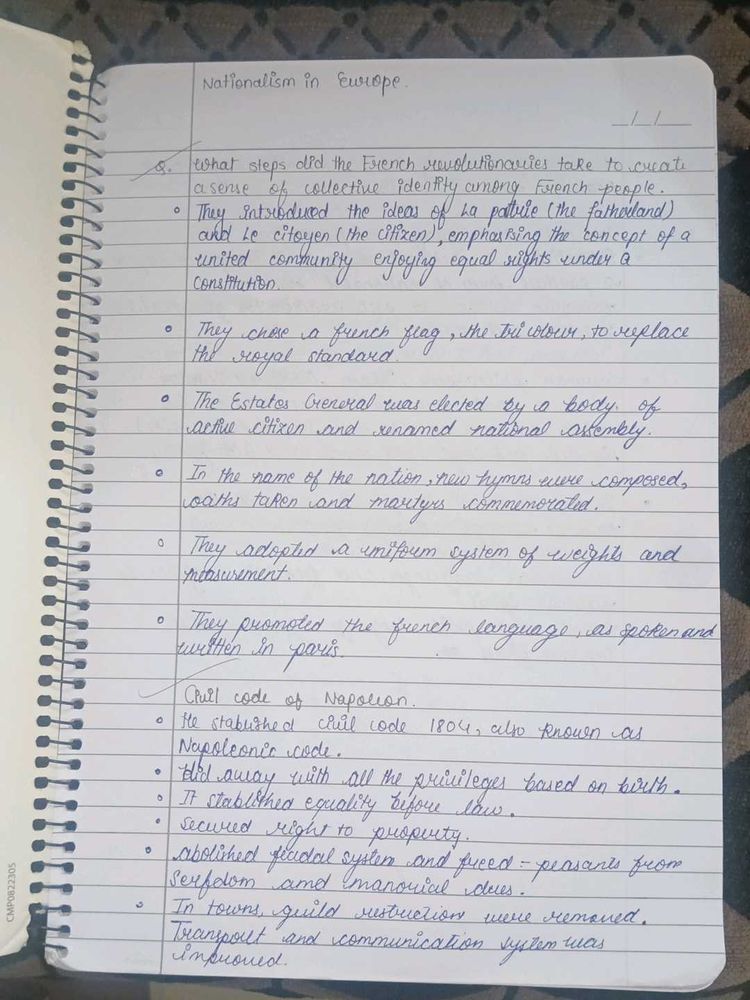 Nationalism in Europe.
_/_/_
Q. What steps did the French revolutionaries take to create
a sense of collective identity among French people.
They introduced the ideas of La patrie (the fatherland)
and Le citoyen (the citizen), emphasising the concept of a
united community enjoying equal rights under a
constitution.
They chose a french flag, the tricolour, to replace
the royal standard.
The Estates General was elected by a body. of
active citizen and renamed national assembly.
In the name of the nation, new hymns were composed,
oaths taken and martyrs commemorated.
They adopted a uniform system of weights and
measurement.
They promoted the french language, as spoken and
written in paris.
Civil code of Napoleon.
He stablished civil code 1804, also known as
Napoleonic code.
Did away with all the privileges based on birth.
It stablished equality before law.
Secured right to property.
abolished feudal system and freed - peasants from
serfdom and manorial dues.
In towns, guild restriction were removed.
Transport and communication system was
improved.
CMP0822305